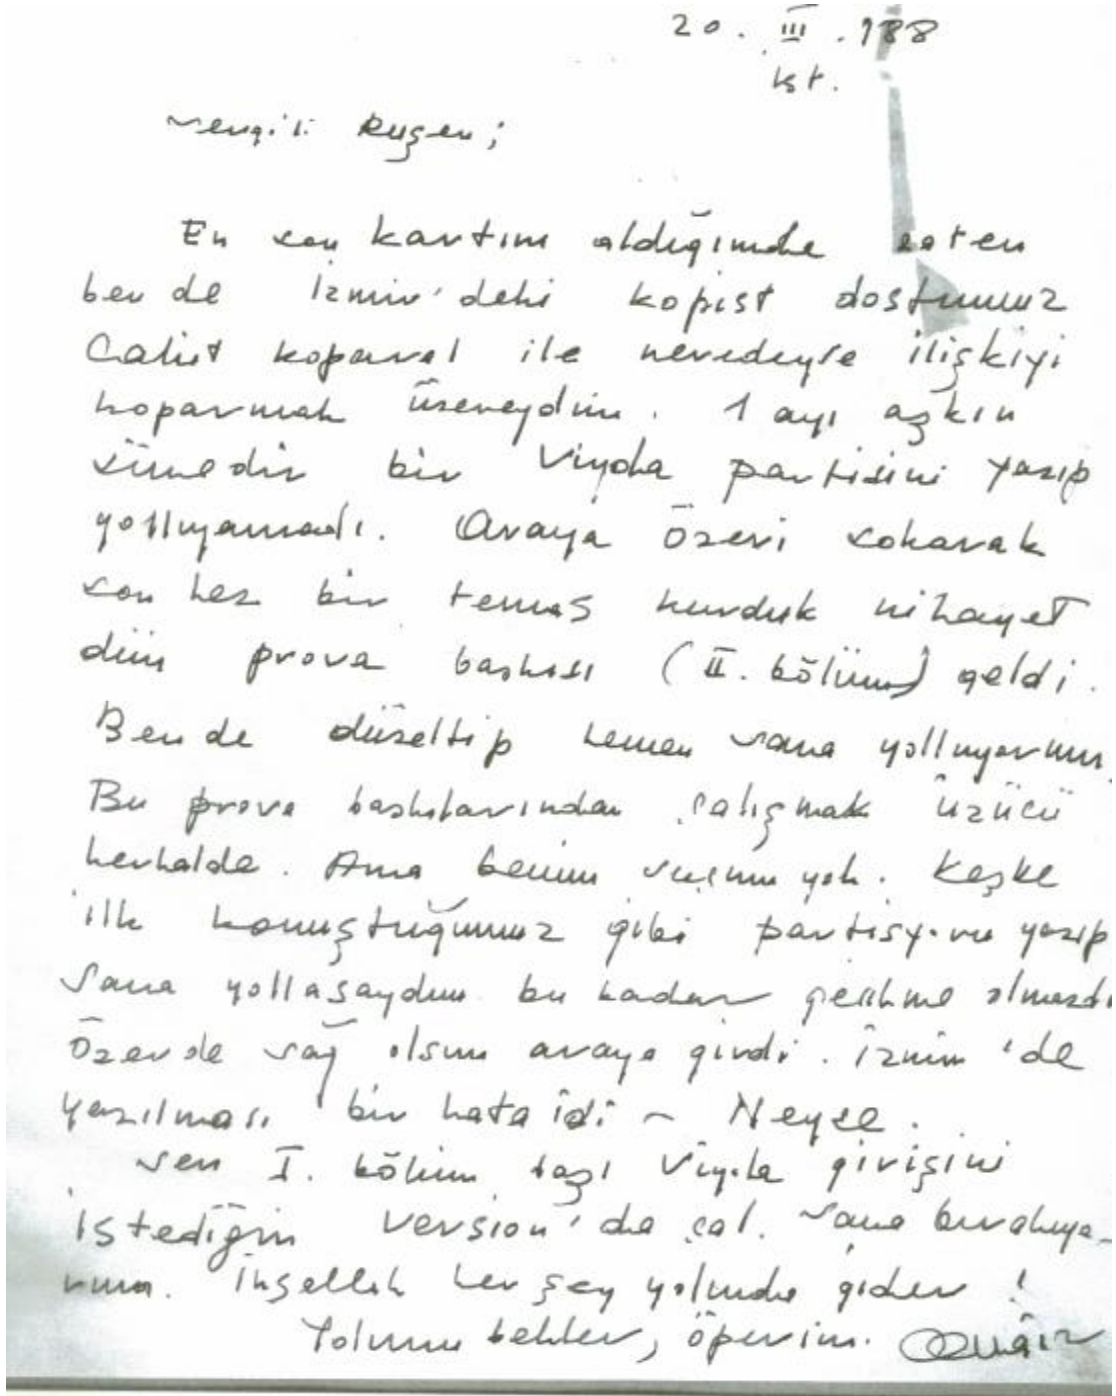 20. III. 988
ist.
Sevgili Ruşen;
En son kartını aldığımda zaten
ben de İzmir'deki kopist dostumuz
Cahit Koparal ile neredeyse ilişkiyi
koparmak üzereydim. 1 ayı aşkın
süredir bir Viyola partisini yazıp
yollıyamadı. Araya Özeri sokarak
son kez bir temas kurduk nihayet
dün prova baskısı (II. bölüm) geldi.
Ben de düzeltip hemen sana yolluyorum.
Bu prova baskılarından çalışmak üzücü
herhalde. Ama benim suçum yok. Keşke
ilk konuştuğumuz gibi partisyonu yazıp
sana yollasaydım bu kadar gecikme olmazdı
Özer de sağ olsun araya girdi. İzmir'de
yazılması bir hata idi ~ Neyse.
Sen I. bölüm başı Viyola girişini
istediğin version'da çal. Sana bırakıyo-
rum. İnşallah her şey yolunda gider!
Yolunu bekler, öperim.